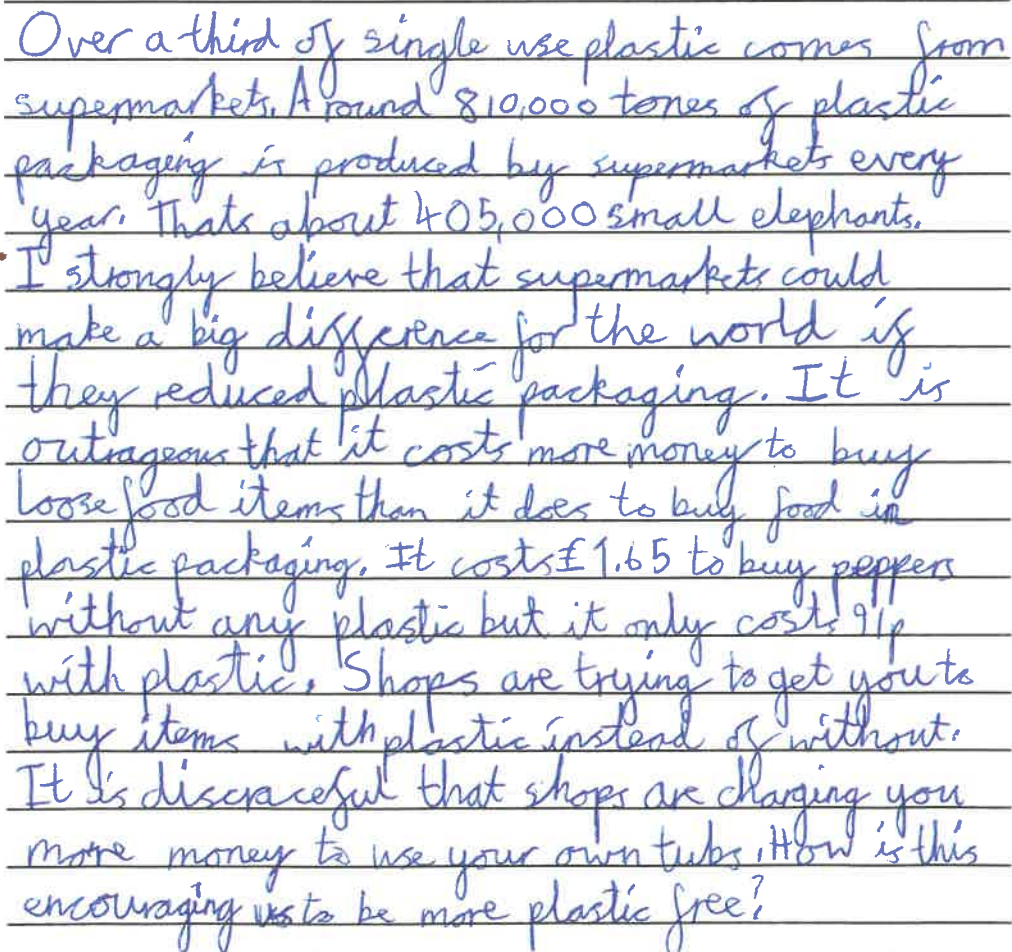 Over a third of single use plastic comes from
supermarkets. Around 810,000 tones of plastic
packaging is produced by supermarkets every
year. Thats about 405,000 small elephants.
I strongly believe that supermarkets could
make a big difference for the world if
they reduced plastic packaging. It is
outrageous that it costs more money to buy
loose food items than it does to buy food in
plastic packaging. It costs £1.65 to buy peppers
without any plastic but it only costs 91p
with plastic. Shops are trying to get you to
buy items with plastic instead of without.
It is discraceful that shops are charging you
more money to use your own tubs. How is this
encouraging us to be more plastic free?